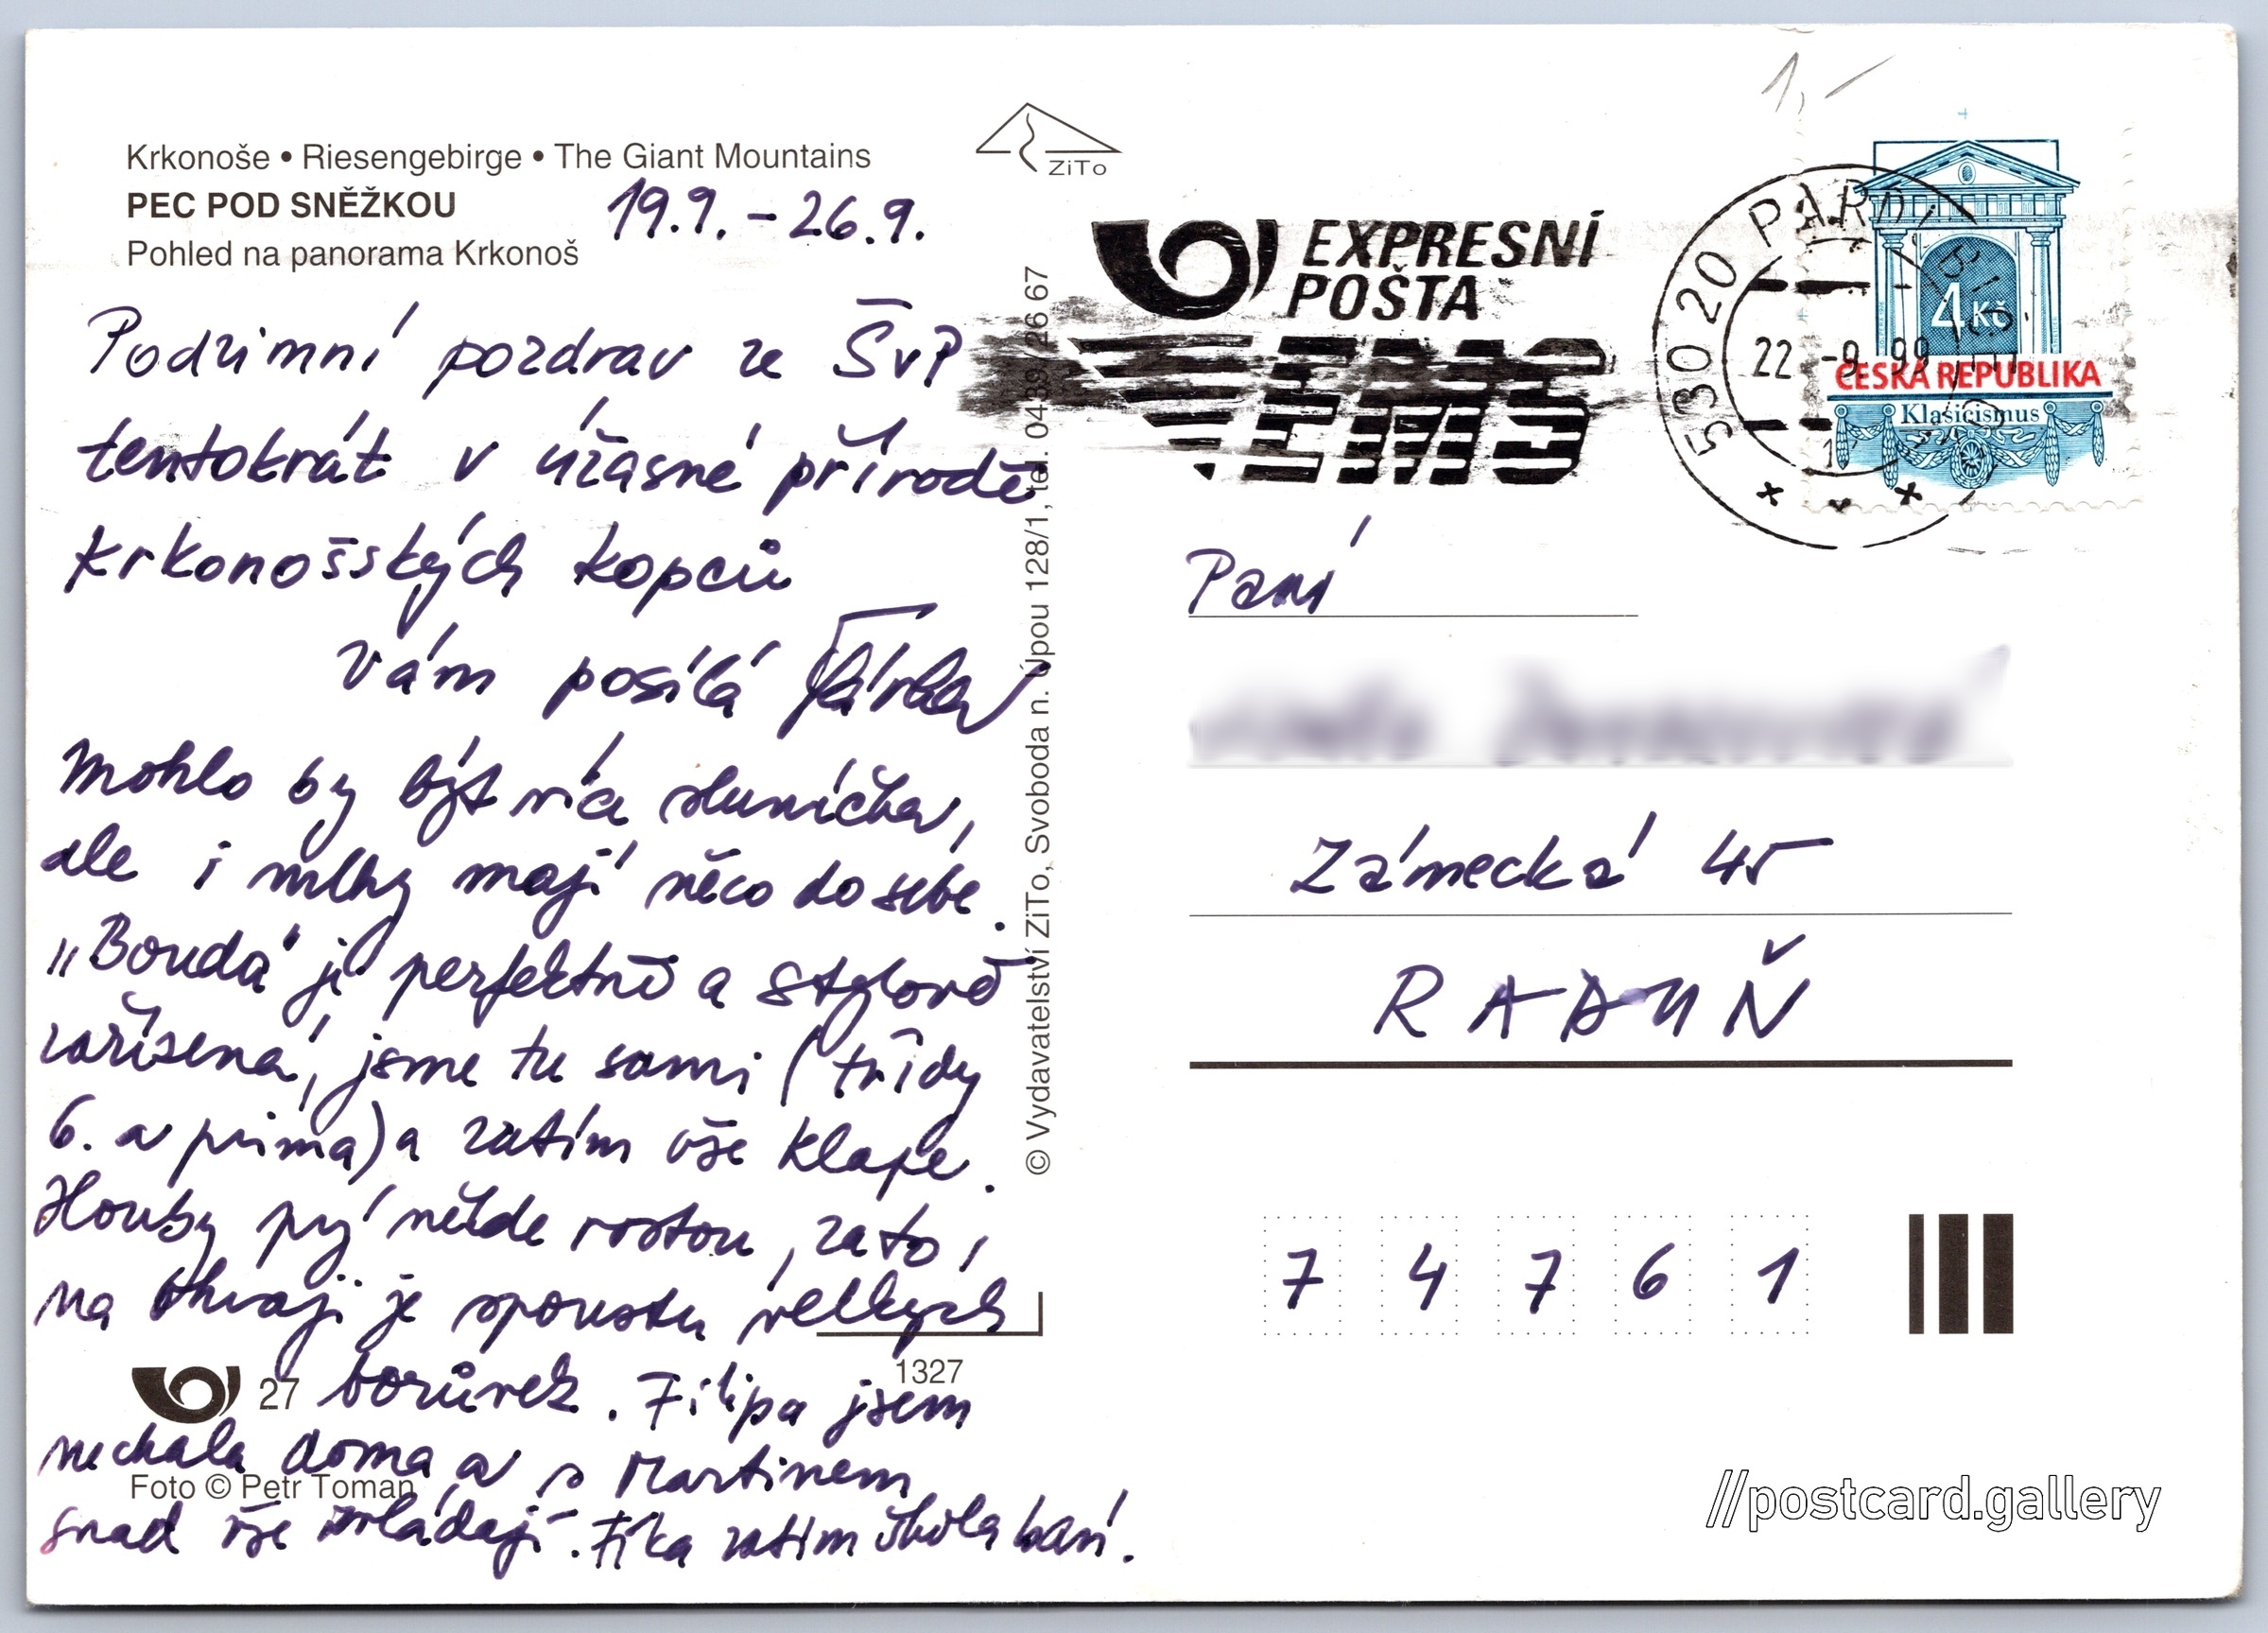 Krkonoše • Riesengebirge • The Giant Mountains
PEC POD SNĚŽKOU
Pohled na panorama Krkonoš
19.9. - 26.9.
Podzimní pozdrav ze ŠvP
tentokrát v úžasné přírodě
krkonošských kopců
Vám posílá Jarka
Mohlo by být více sluníčka,
ale i mlhy mají něco do sebe.
„Bouda" je perfektně a stylově
zařízená, jsme tu sami (třídy
6. a prima) a zatím vše klape.
Houby prý někde rostou, zato
na je spoustu velkých
borůvek. Filipa jsem
nechala doma a s Martinem
snad vše zvládají. zatím škola baví.
27
1327
Foto © Petr Toman
© Vydavatelství ZiTo, Svoboda n. Úpou 128/1, tel. 0439/26 67
ZiTo
EXPRESNÍ
POŠTA
EMS
1,-
530 20 PARDUBICE
22 -9. 99
4 Kč
ČESKÁ REPUBLIKA
Klasicismus
Paní
Zámecká 45
RADUŇ
7 4 7 6 1
//postcard.gallery